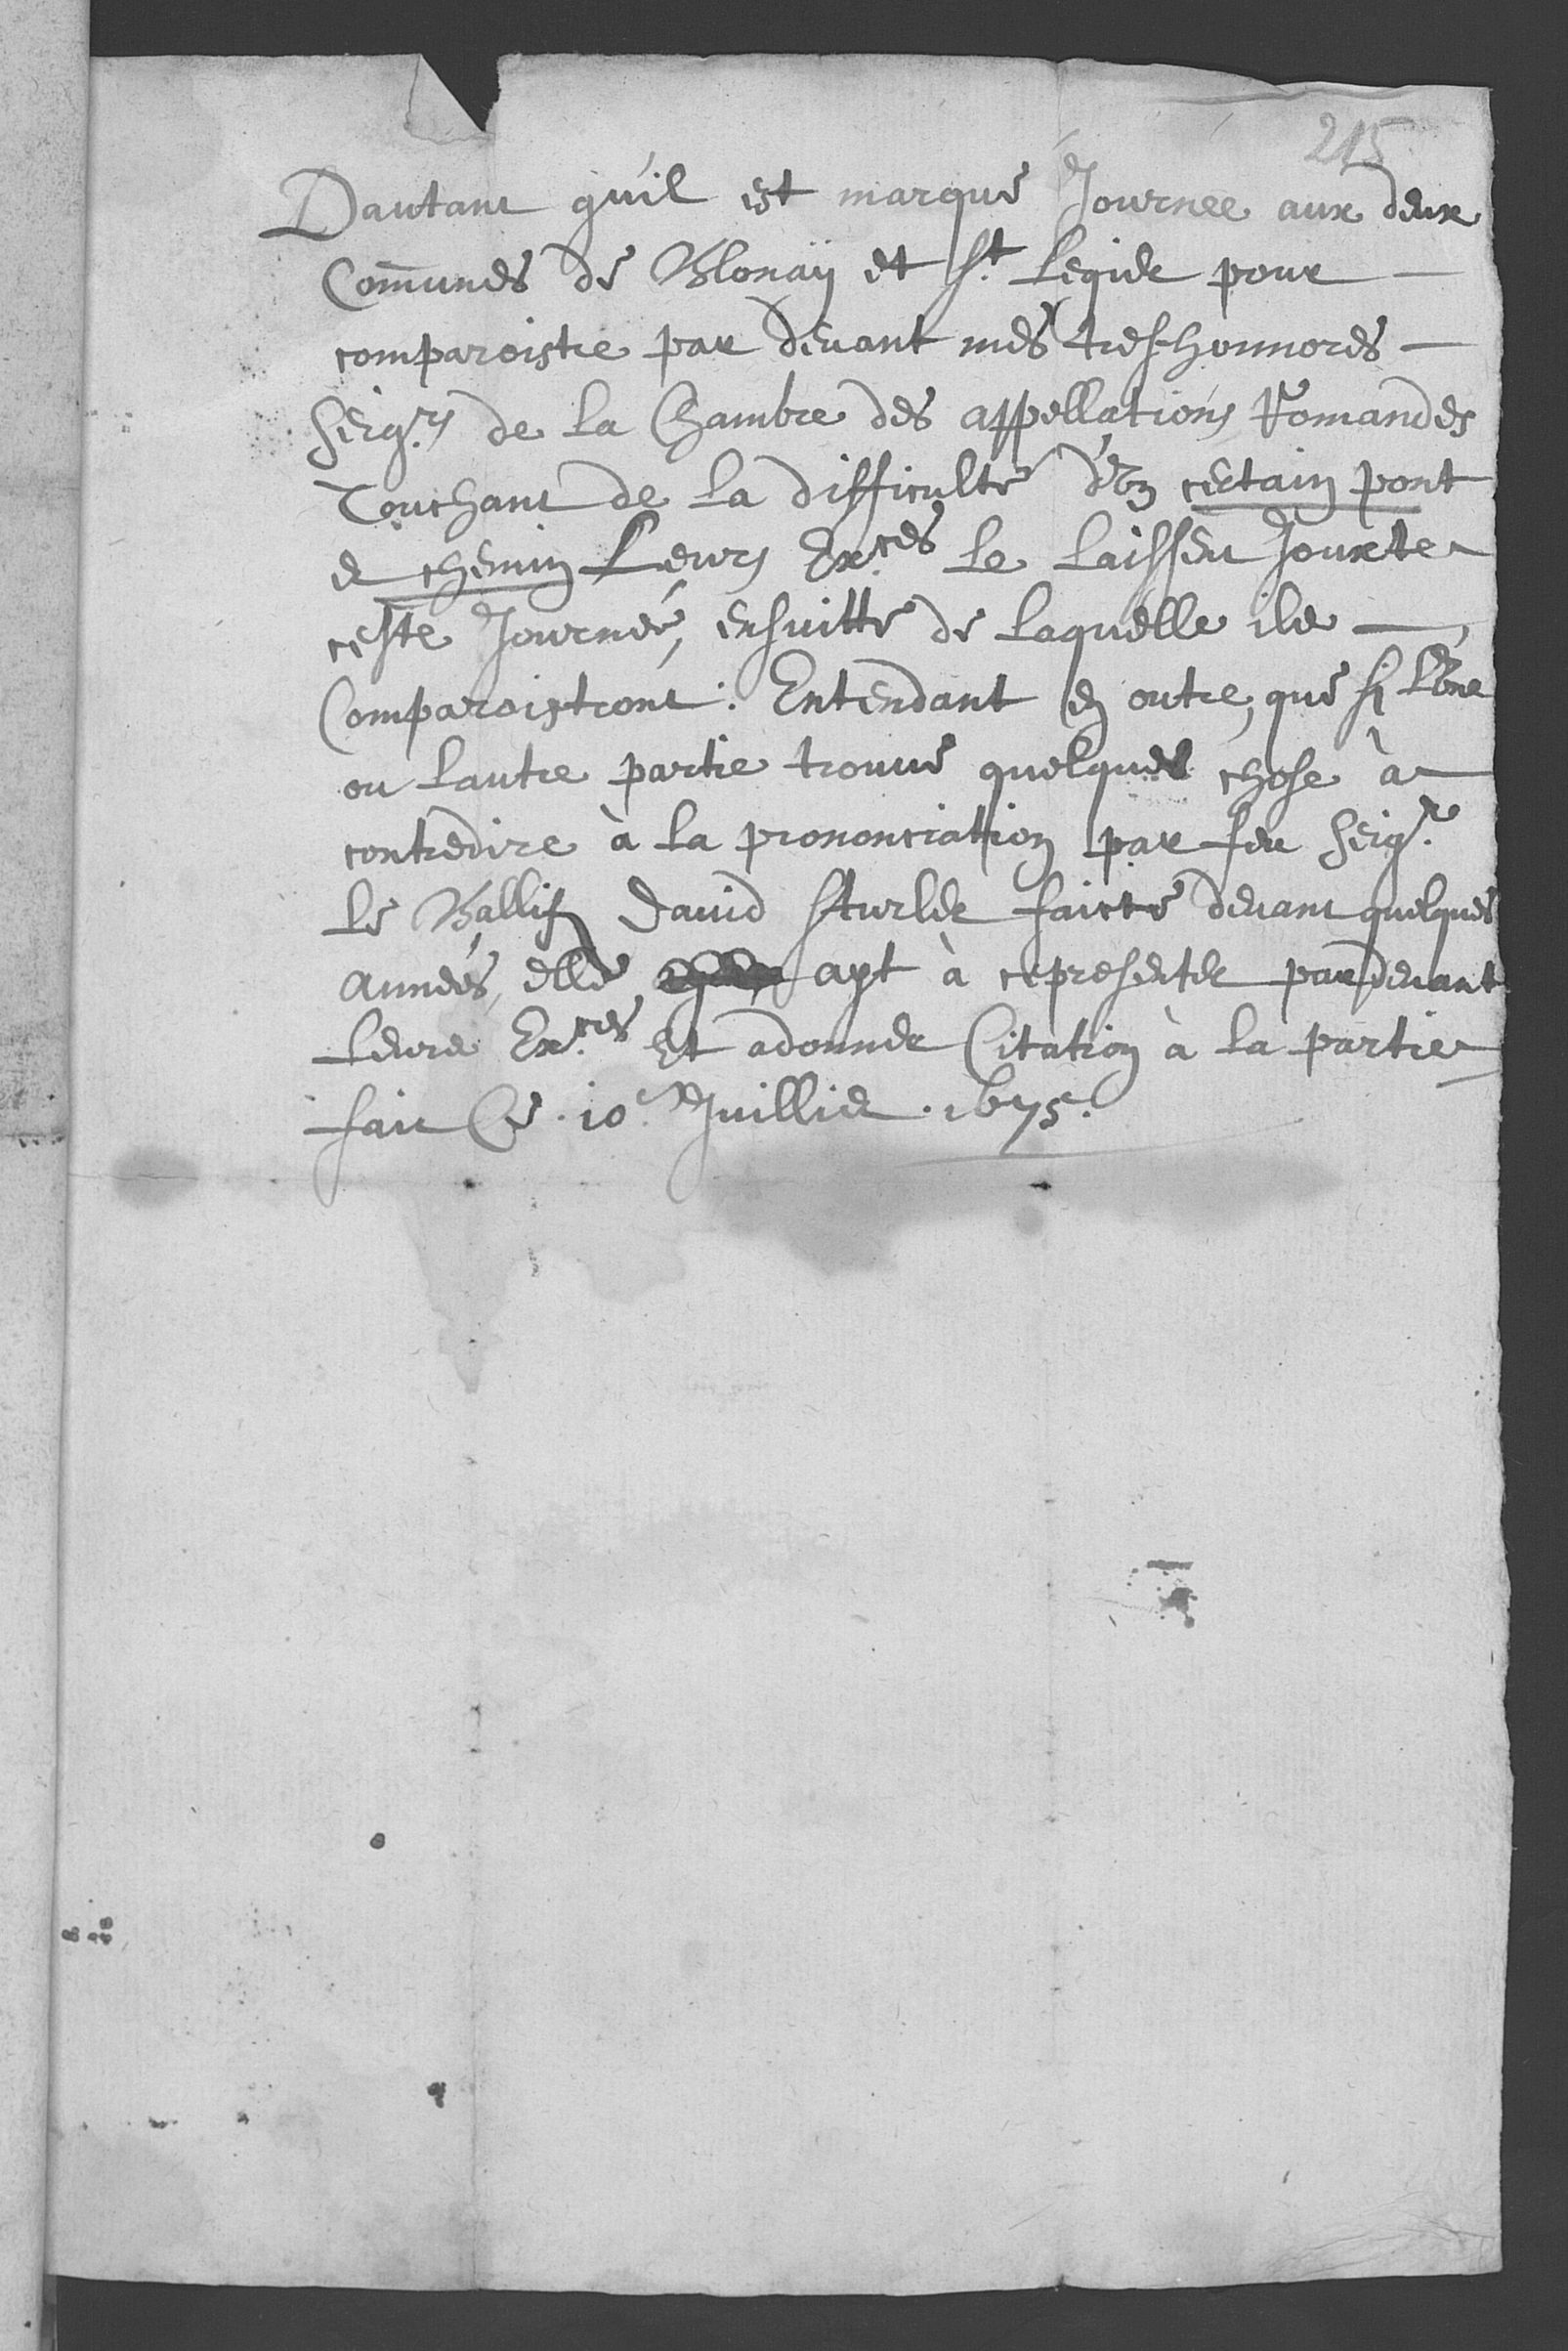 215
Dautant qu'il est marqué Journee aux deux
Com̄unes de Blonaÿ et St. Legier pour —
comparoistre par devant mes tres honnores —
Seigrs. de la Chambre des appellations Romandes
Touchant de la difficulté d'Vn certain pont
et chemin Leurs Exces. le laissent Jouxte
ceste Journée, ensuitte de laquelle ils —
Comparoistront: Entendant en outre, que si l'Vne
ou lautre partie trouve quelque chose à
contredire à la prononciation par feu Seigr.
le Ballif David Sturler faicte devant quelques
années, elle ayt à representer par devant
leurs Exces. et adonner Citation à la partie
fait Ce . 10e. Juillied . 1675.